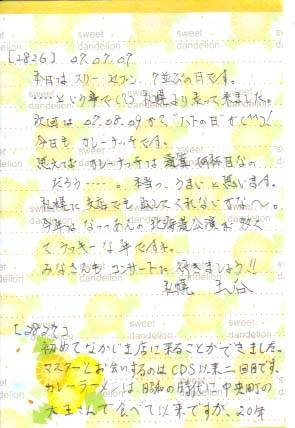 sweet dandelion
[2826] 07.07.07
本日は スリーセブン、7並びの日です。
……という事で(?) 札幌より来て来ました。
次回は 07.08.09 か?"ハトの日"か(^^)!
今日も カレーラーチです。
思えば カレー
だろう……。本当、うまいと思います。
札幌に支店でも出してくれないすかな〜。
今年は なっつぁんの北海道公演が多くて
ラッキーな年ですネ。
みなさんも コンサートに行きましょう!!
札幌
sweet dandelion
[2827]
初めてなかじま店に来ることができました。
マスターとお会いするのはCDS以来二回目です。
カレーラーメンは 昭和の時代に 中央町の
大王さんで食べて以来ですが、20年